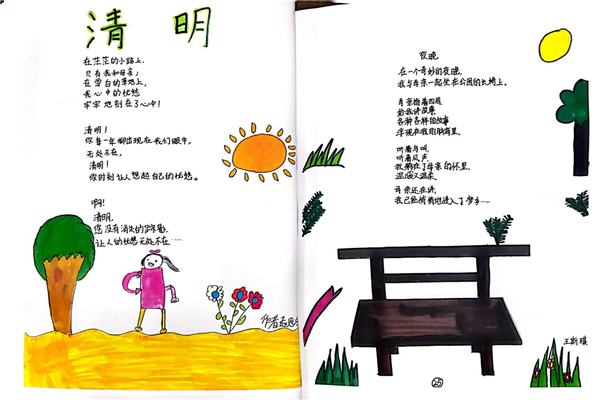 清明
在茫茫的小路上,
只有我和母亲;
在雪白的草地上,
我心中的忧愁
牢牢地刻在了心中!
清明!
你每一年都出现在我们眼中,
无处不在,
清明!
你时刻让人想起自己的忧愁。
啊!
清明,
您没有消失的踪影,
让人的忧愁无处不在····
作者
夜晚
在一个奇妙的夜晚,
我与母亲一起坐在公园的长椅上。
母亲指着四周
给我讲故事,
各种各样的故事
浮现在我的脑海里。
听着鸟叫,
听着风声,
我躺在了母亲的怀里,
温暖又温柔。
母亲还在讲,
我已经悄悄地进入了梦乡····
王斯琪
25